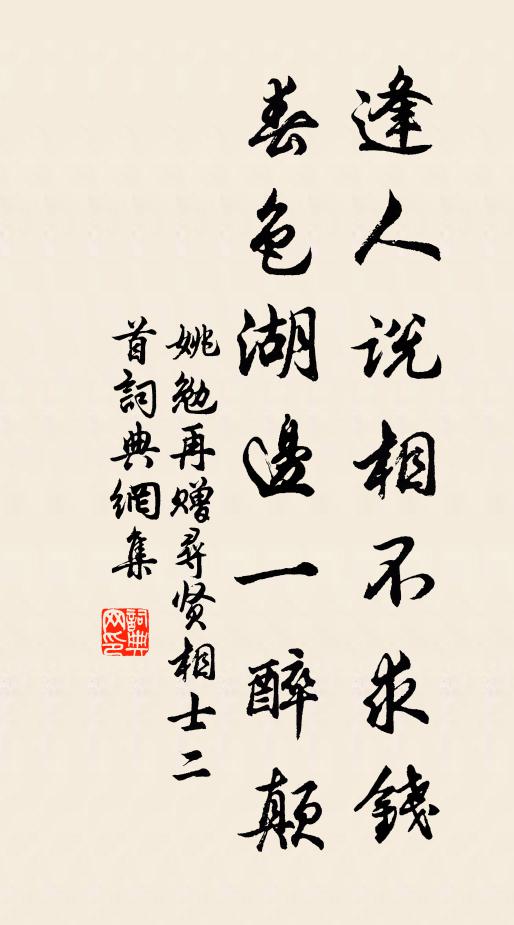 逢人说相不求錢
春色湖邊一醉顛
姚勉再赠尋贤相士二
首詞典網集
詞典網印